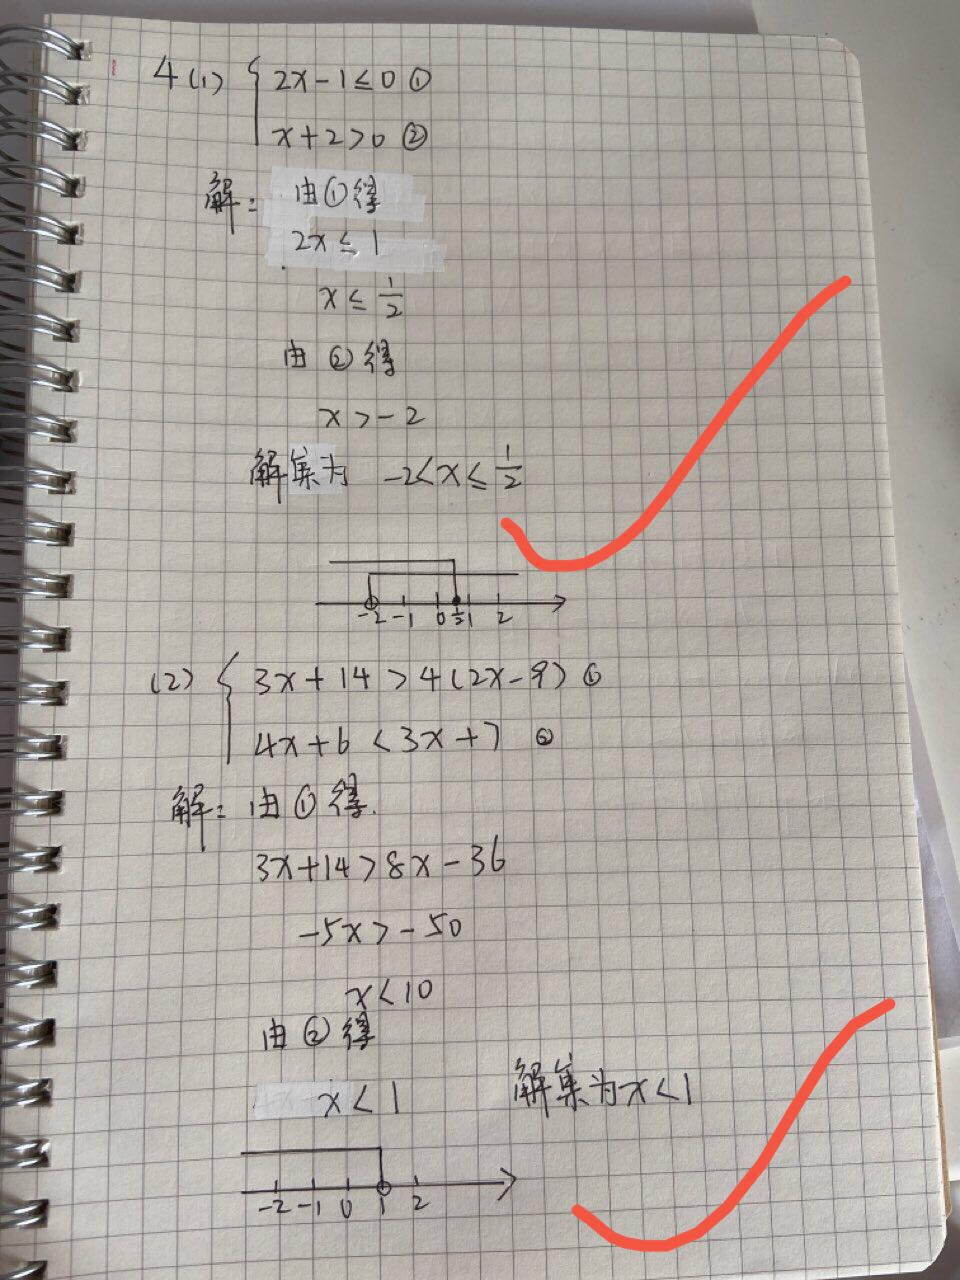 4(1) { 2x-1≤0 ①
x+2>0 ②
解: 由①得
2x≤1
x≤1/2
由②得
x>-2
解集为 -2<x≤1/2
-2 -1 0 1/2 1 2
(2) { 3x+14>4(2x-9) ①
4x+6<3x+7 ②
解: 由①得.
3x+14>8x-36
-5x>-50
x<10
由②得
x<1 解集为x<1
-2 -1 0 1 2